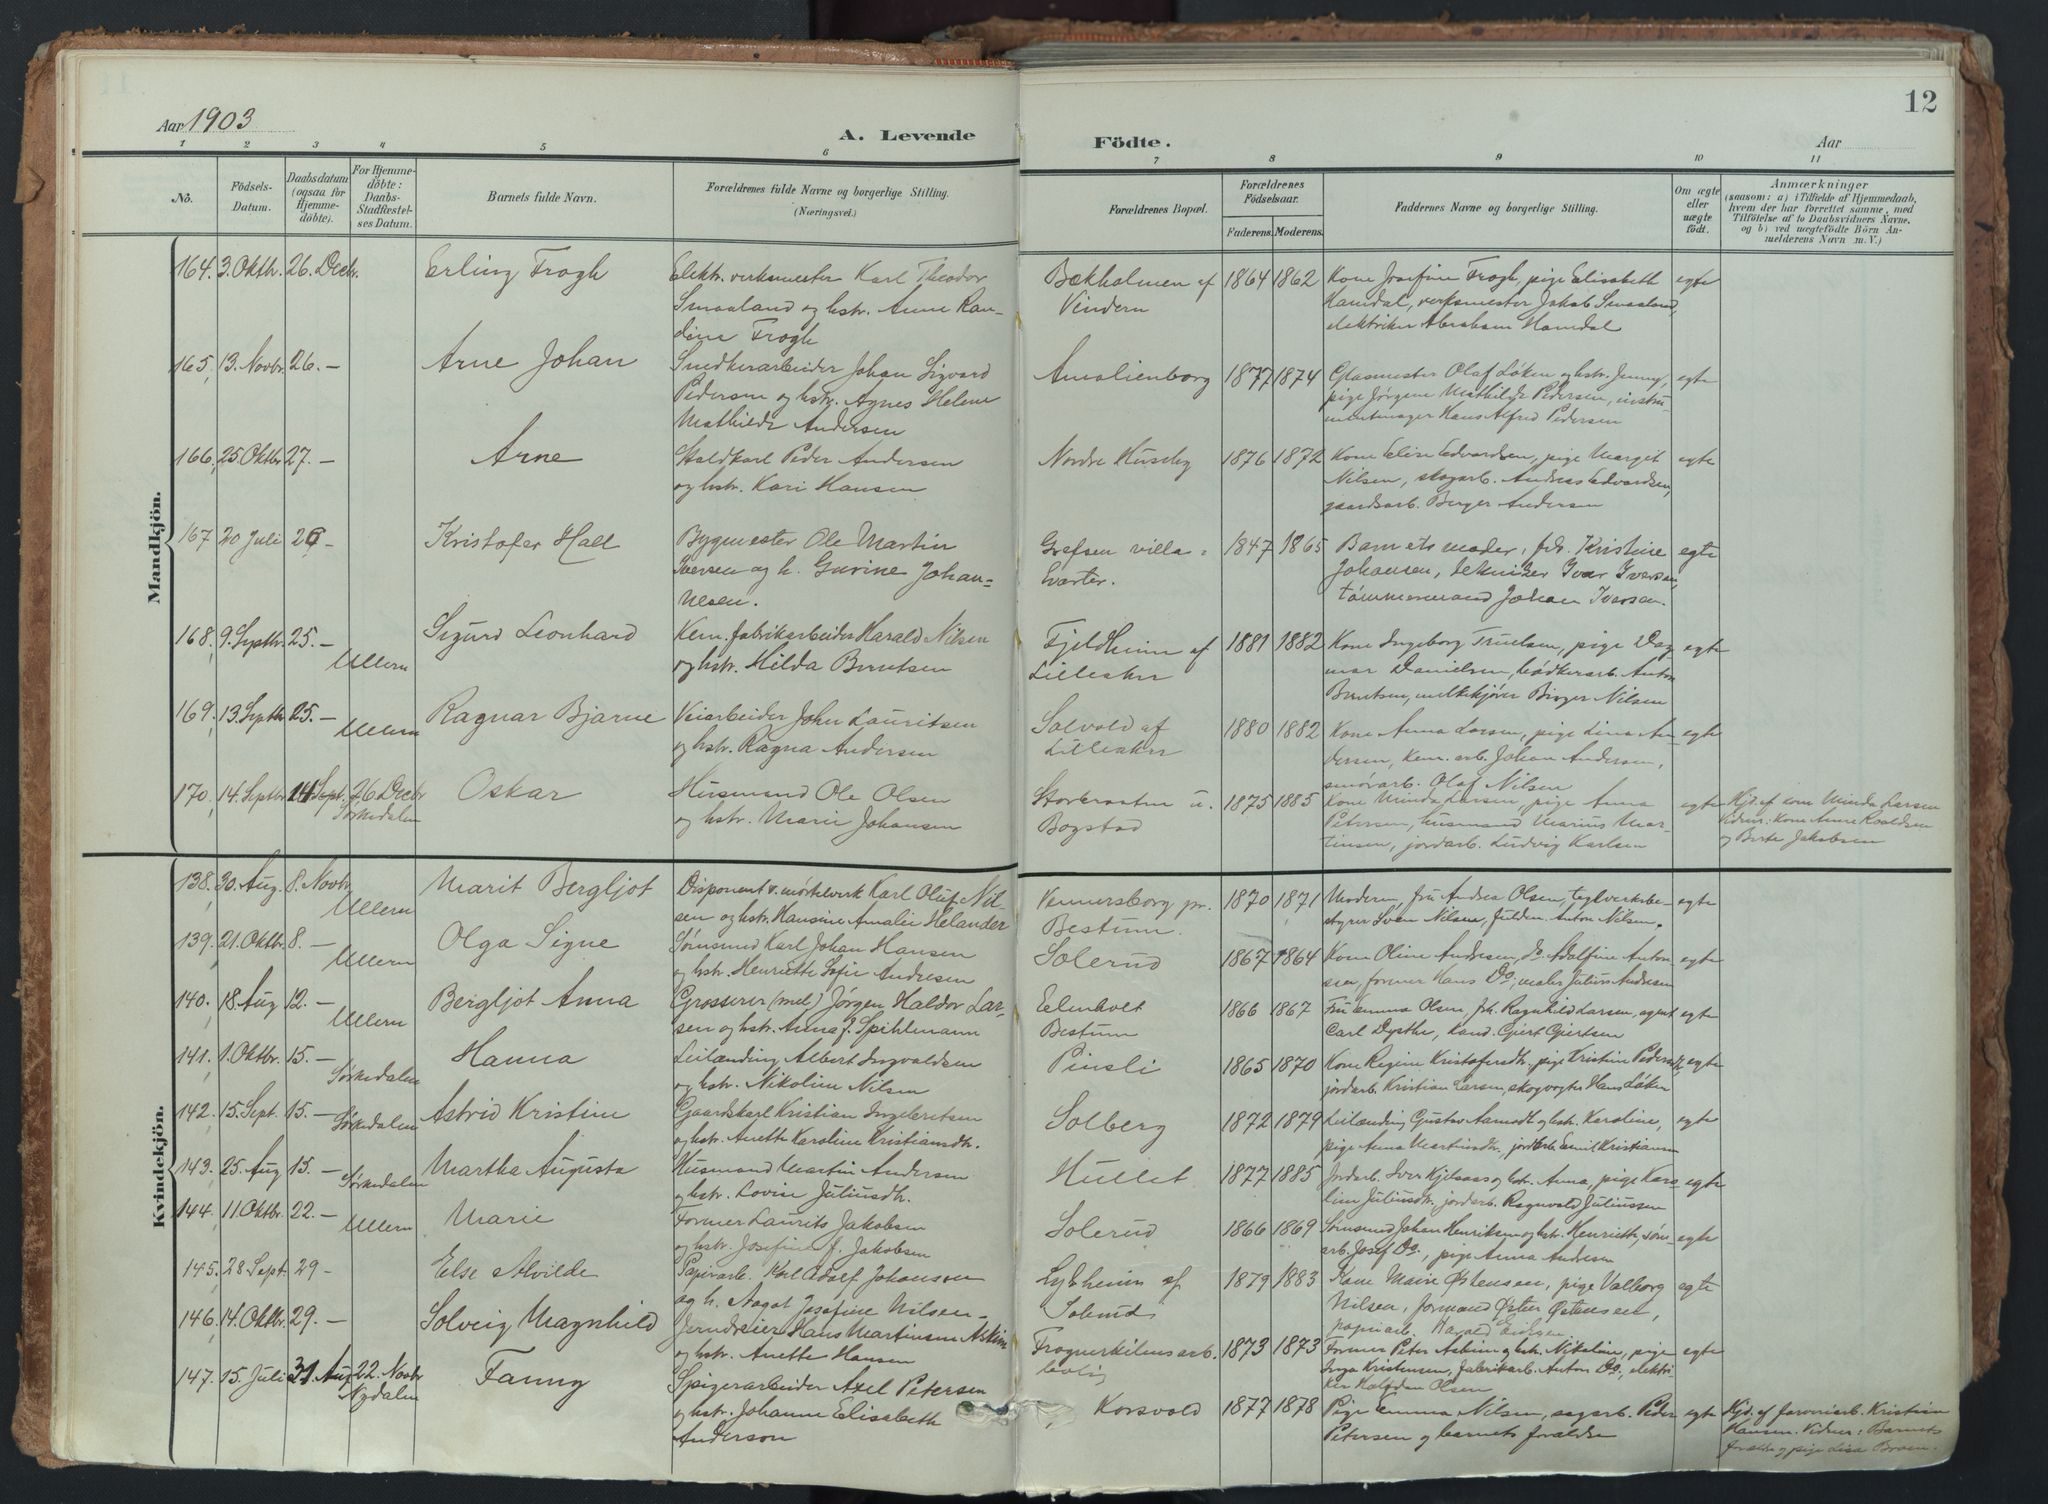 Aar 1903
A. Levende
Födte.
Aar
12
1 2 3 4 5 6 7 8 9 10 11
No.
Födsels-
Datum.
Daabsdatum
(ogsaa for
Hjemme-
döbte).
For Hjemme-
döbte:
Daabs-
Stadfæstel-
ses Datum.
Barnets fulde Navn.
Forældrenes fulde Navne og borgerlige Stilling.
(Næringsvei.)
Forældrenes Bopæl.
Forældrenes
Födselsaar.
Faderens. Moderens.
Faddernes Navne og borgerlige Stilling.
Om ægte
eller
uægte
födt.
Anmærkninger
(saasom: a) i Tilfælde af Hjemmedaab,
hvem der har forrettet samme, med
Tilföielse af to Daabsvidners Navne,
og b) ved uægtefödte Börn An-
melderens Navn m. V.)
Mandkjön.
164. 3. Oktbr. 26. Decbr. Erling Frogh
Elektr. verksmester Karl Theodor
Smaaland og hstr. Anne Ran-
dine Frogh
Bækholmen af
Vindern
1864 1862
Kone Josefine Frogh, pige Elisabeth
Hamdal, verksmester Jakob Smaaland,
elektriker Abraham Hamdal
egte
165. 13. Novbr. 26. — Arne Johan
Snedkerarbeider Johan Sigvard
Pedersen og hstr. Agnes Helene
Mathilde Andersen
Amalienborg
1877 1874
Glasmester Olaf Løken og hstr. Jenny,
pige Jørgine Mathilde Pedersen, instru-
mentmager Hans Alfred Pedersen
egte
166. 25. Oktbr. 27. — Arne
Staldkarl Peder Andersen
og hstr. Kari Hansen
Nordre Huseby
1876 1872
Kone Elise Edvardsen, pige Marget
Nilsen, skogarb. Andreas Edvardsen,
gaardsarb. Berger Andersen
egte
167 20 Juli 26 — Kristofer Hall
Bygmester Ole Martin
Iversen og h. Gurine Johan-
nesen.
Grefsen villa-
kvarter.
1847 1865
Barnets moder, frk. Kristine
Johansen, tekniker Ivar Iversen,
tømmermand Johan Iversen.
egte
168. 9. Septbr. 25. — Ullern Sigurd Leonhard
Kem. fabrikarbeider Harald Nilsen
og hstr. Hilda Berntsen
Fjeldheim af
Lilleaker
1881 1882
Kone Ingeborg Truelsen, pige Dag-
mar Danielsen, bødkerarb. Anton
Berntsen, melkekjører Birger Nilsen
egte
169. 13. Septbr. 25. — Ullern Ragnar Bjarne
Veiarbeider John Lauritsen
og hstr. Ragna Andersen
Solvold af
Lilleaker
1880 1882
Kone Anna Larsen, pige Lina An-
dersen, kem. arb. Johan Andersen,
smørarb. Olaf Nilsen
egte
170. 14. Septbr. 14 Sept. 26 Decbr Sørkedalen Oskar
Husmand Ole Olsen
og hstr. Marie Johansen
u.
Bogstad
1875 1885
Kone Minda Larsen, pige Anna
Petersen, husmand Marius Mar-
tinsen, jordarb. Ludvig Karlsen
egte
Hjd. af kone Minda Larsen
Vidner: Kone Anne Roaldsen
og Berte Jakobsen
Kvindekjön.
138. 30. Aug. 8. Novbr. Ullern Marit Bergljot
Disponent v. mørtelverk Karl Oluf Nil-
sen og hstr. Hansine Amalie Helander
Vennersborg pr.
Bestum.
1870 1871
Moderen, fru Andrea Olsen, teglverksbe-
styrer Sven Nilsen, fuldm. Anton Nilsen.
egte
139. 21. Oktbr. 8. — Ullern Olga Signe
Sømsmed Karl Johan Hansen
og hstr. Henriette Sofie Andresen
Solerud
1867 1864
Kone Oline Andresen, Do Adolfine Anton-
sen, former Hans Do, maler Julius Andresen
egte
140. 18. Aug 12. — Ullern Bergljot Anna
Grosserer (mel) Jørgen Haldor Lar-
sen og hstr. Anna f. Spihlmann
Elmholt
Bestum
1866 1867
Fru Emma Olsen, frk. Ragnhild Larsen, agent
Carl Dysthe, kand. Gjert Gjertsen
egte
141. 1. Oktbr. 15. — Sørkedalen Hanna
Leilænding Albert Ingvaldsen
og hstr. Nikoline Nilsen
Pinsli
1865 1870
Kone Regine Kristofersdtr. pige Kristine Pedersdtr,
jordarb. Kristian Larsen, skogvogter Hans Løken
egte
142. 15. Sept. 15. — Sørkedalen Astrid Kristine
Gaardskarl Kristian Ingebretsen
og hstr. Anette Karoline Kristiansdtr.
Solberg
1872 1879
Leilænding Gustav Aamodt og hstr. Karoline,
pige Anna Martinsdtr, jordarb. Emil Kristiansen
egte
143. 25. Aug 15. — Sørkedalen Martha Augusta
Husmand Martin Andersen
og hstr. Lovise Juliusdtr.
Hullet
1877 1885
Jordarb. Iver Kjelsaas og hstr. Anna, pige Karo-
line Juliusdtr, jordarb. Ragnvald Juliussen
egte
144. 11. Oktbr. 22. — Ullern Marie
Former Laurits Jakobsen
og hstr. Josefine f. Jakobsen
Solerud
1866 1869
Sømsmed Johan Henriksen og hstr. Henriette, søm-
arb. Josef Do., pige Anna Andresen
egte
145. 28 Sept. 29 — Else Alvilde
Papirarb. Karl Adolf Johansen
og h. Aagot Josefine Nilsen
Lysheim af
Solerud
1879 1883
Kone Maire Østensen, pige Valborg
Nilsen, formand Østen Østensen,
papirarb. Harald Eriksen
egte
146. 14. Oktbr. 29. — Solveig Magnhild
Jerndreier Hans Martinsen Askim
og hstr. Anette Hansen
Frognerkilens arb.
bolig
1873 1873
Former Peter Askim og hstr. Nikoline, pige
Inga Kristensen, fabrikarb. Anton Do., elektri-
ker Halfdan Olsen
egte
147. 15. Juli 31 Aug 22. Novbr Nydalen Fanny
Spigerarbeider Axel Petersen
og hstr. Johanne Elisabeth
Anderson
Korsvold
1877 1878
Pige Emma Nilsen, sagarb. Peder
Petersen og barnets forældre
egte
Hjd. af jernarb. Kristian
Hansen. Vidner: Barnets
forældre og pige Lisa